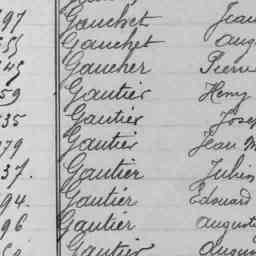 97 Gauchet Jean
55 Gauchet Aug
45 Gaucher Pierre
59 Gautier Henry
35 Gautier Jose
79 Gautier Jean M
37. Gautier Julien
94. Gautier Edouard
96 Gautier Auguste
Gautier Augus